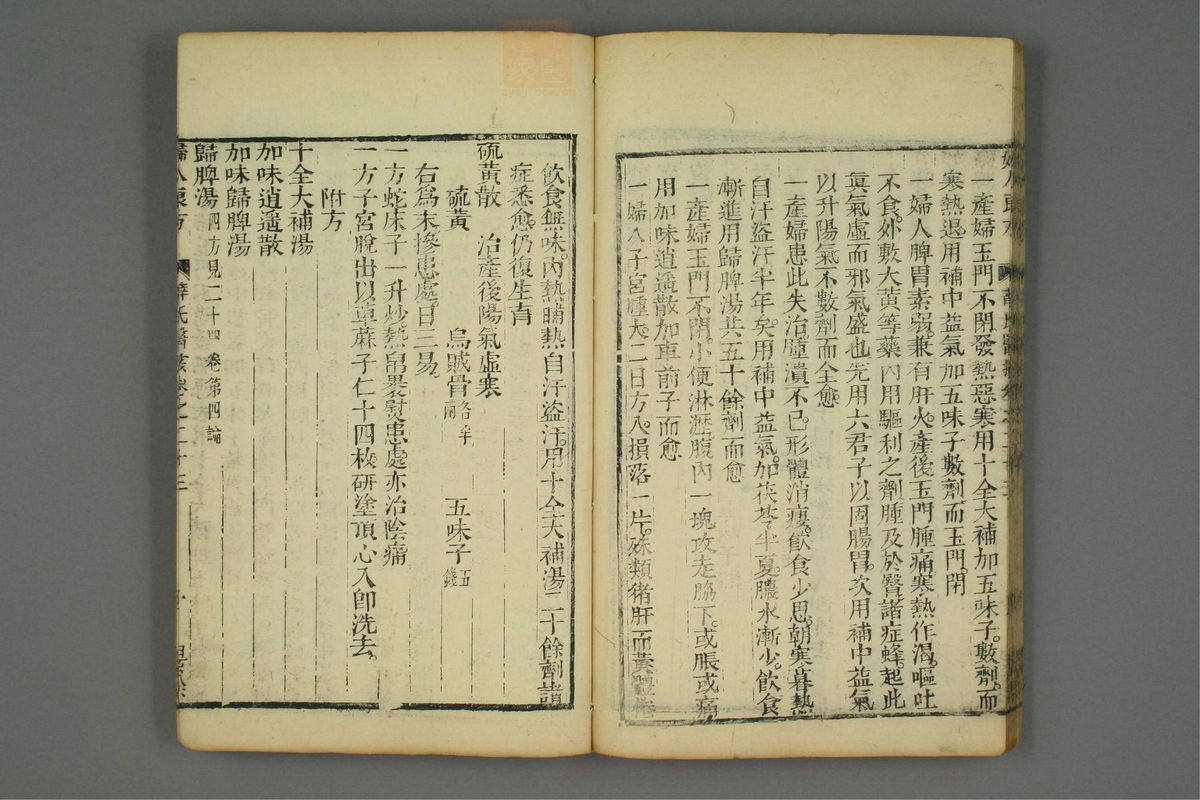 一產婦玉門不閉發熱惡寒用十全大補加五味子數劑而
寒熱退用補中益氣加五味子數劑而玉門閉
一婦人脾胃素弱兼有肝火產後玉門腫痛寒熱作渴嘔吐
不食外敷大黃等藥內用驅利之劑腫及於臀諸症蜂起此
眞氣虛而邪氣盛也先用六君子以固腸胃次用補中益氣
以升陽氣不數劑而全愈
一產婦患此失治腫潰不已形體消瘦飲食少思朝寒暮熱
自汗盜汗半年矣用補中益氣加茯苓半夏膿水漸少飲食
漸進用歸脾湯共五十餘劑而愈
一產婦玉門不閉小便淋瀝腹內一塊攻走脇下或脹或痛
用加味逍遙散加車前子而愈
一婦人子宮腫大二日方入損落一片殊類猪肝而黃體倦
飲食無味內熱晡熱自汗盜汗用十全大補湯二十餘劑諸
症悉愈仍復生育
硫黃散　治產後陽氣虛寒
硫黃　烏賊骨各半兩　五味子五錢
右爲末摻患處日三易
一方蛇床子一升炒熱帛裹熨患處亦治陰痛
一方子宮脫出以萆蔴子仁十四枚研塗頂心入卽洗去
附方
十全大補湯
加味逍遙散
加味歸脾湯
歸脾湯四方見二十四卷第四論